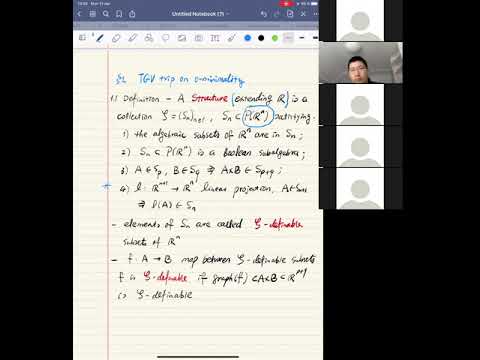 Untitled Notebook (7)
§2 TGV trip on o-minimality
1.1 Definition - A Structure (extending ℝ) is a
collection S = (Sₙ)ₙ≥₁, Sₙ ⊂ P(ℝⁿ) satisfying.
1) the algebraic subsets of ℝⁿ are in Sₙ;
2) Sₙ ⊂ P(ℝⁿ) is a boolean subalgebra;
3) A ∈ Sₚ, B ∈ S_q ⇒ A×B ∈ Sₚ₊q;
* 4) p: ℝⁿ⁺¹ → ℝⁿ linear projection, A ∈ Sₙ₊₁
⇒ p(A) ∈ Sₙ
- elements of Sₙ are called S-definable
subset of ℝⁿ
- f: A → B map between S-definable subsets
f is S-definable if graph(f) ⊂ A×B ⊂
is S-definable